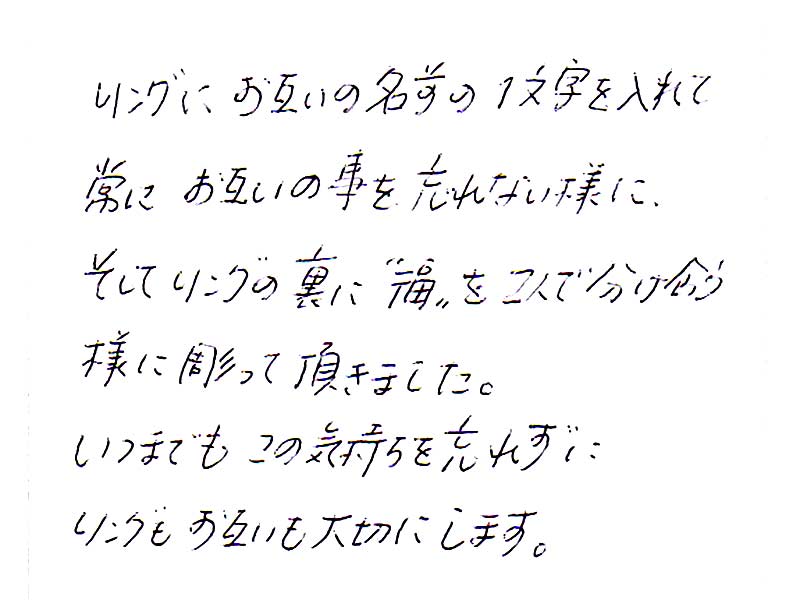 リングに お互いの名前の 1文字を入れて
常に お互いの事を 忘れない様に、
そしてリングの裏に“福„を 2人で分け合う
様に彫って 頂きました。
いつまでも この気持ちを忘れずに
リングも お互いも大切にします。